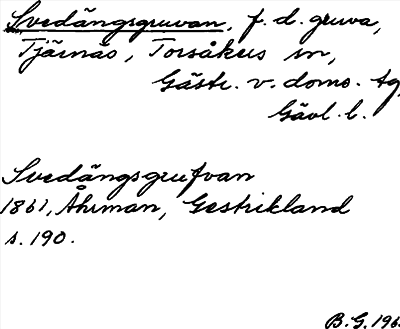 Svedängsgruvan, f. d. gruva,
Tjärnäs, Torsåkers sn,
Gästr. v. doms. tg,
Gävl. l.
Svedängsgrufvan
1861, Åhrman, Gestrikland
s. 190.
B.G. 196